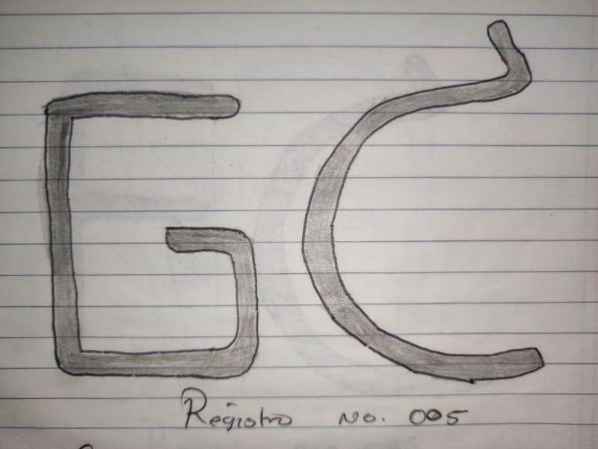 GC
Registro No. 005